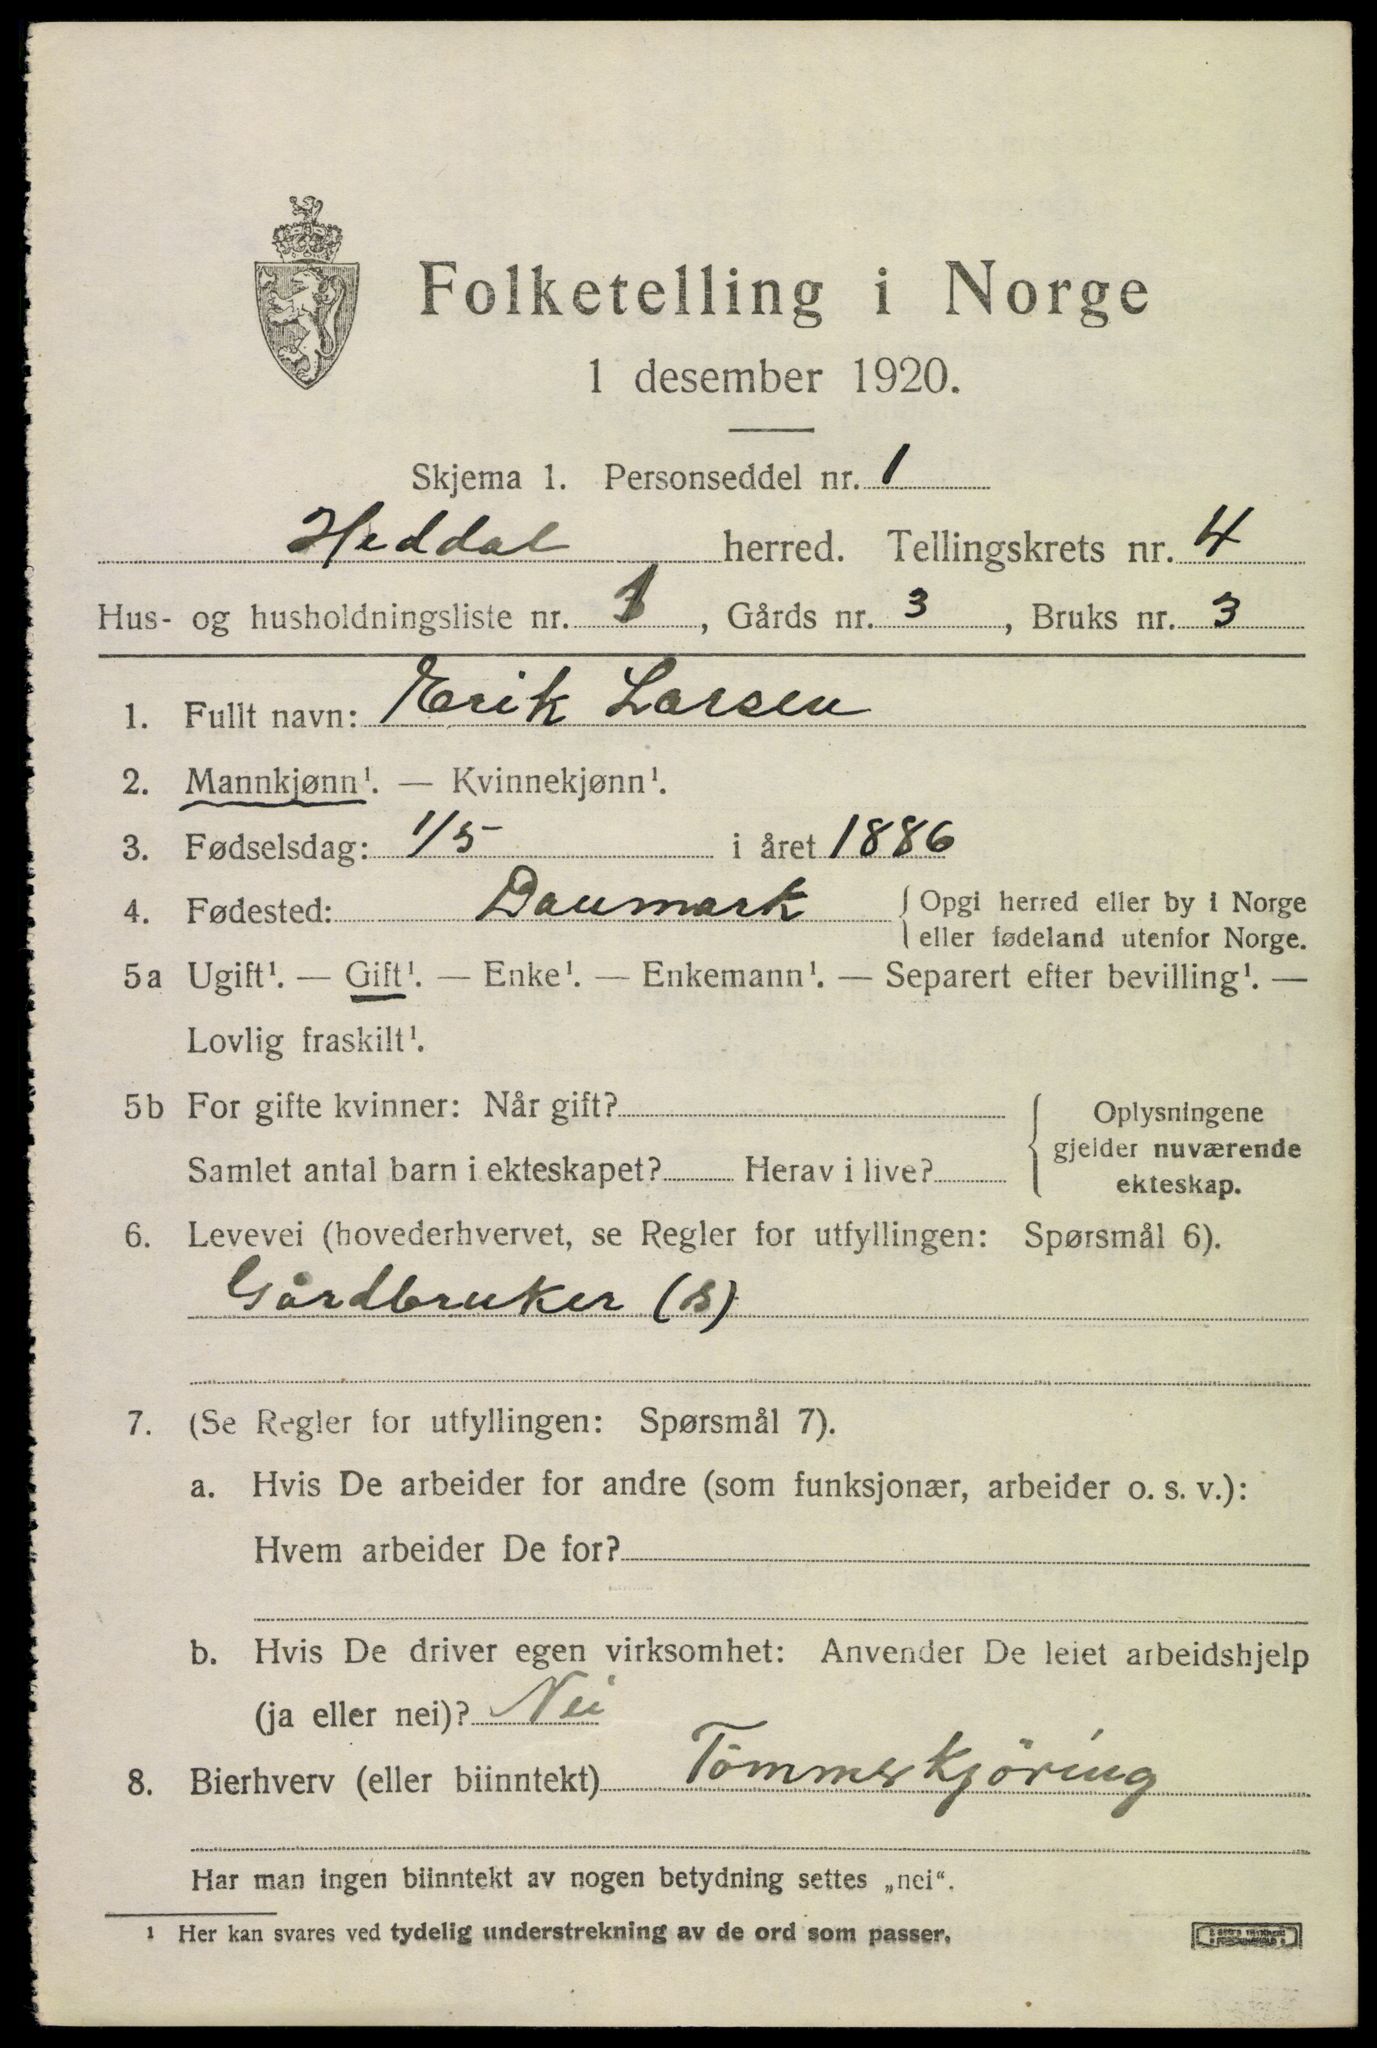 Folketelling i Norge
1 desember 1920.
Skjema 1. Personseddel nr. 1
Heddal herred. Tellingskrets nr. 4
Hus- og husholdningsliste nr. 1, Gårds nr. 3, Bruks nr. 3
1. Fullt navn: Erik Larsen
2. Mannkjønn¹. — Kvinnekjønn¹.
3. Fødselsdag: 1/5 i året 1886
4. Fødested: Danmark { Opgi herred eller by i Norge
eller fødeland utenfor Norge.
5a Ugift¹. — Gift¹. — Enke¹. — Enkemann¹. — Separert efter bevilling¹. —
Lovlig fraskilt¹.
5b For gifte kvinner: Når gift?
Samlet antal barn i ekteskapet? Herav i live?
{ Oplysningene
gjelder nuværende
ekteskap.
6. Levevei (hovederhvervet, se Regler for utfyllingen: Spørsmål 6).
Gårdbruker (S)
7. (Se Regler for utfyllingen: Spørsmål 7).
a. Hvis De arbeider for andre (som funksjonær, arbeider o. s. v.):
Hvem arbeider De for?
b. Hvis De driver egen virksomhet: Anvender De leiet arbeidshjelp
(ja eller nei)? Nei
8. Bierhverv (eller biinntekt) Tömmerkjöring
Har man ingen biinntekt av nogen betydning settes „nei“.
1 Her kan svares ved tydelig understrekning av de ord som passer.